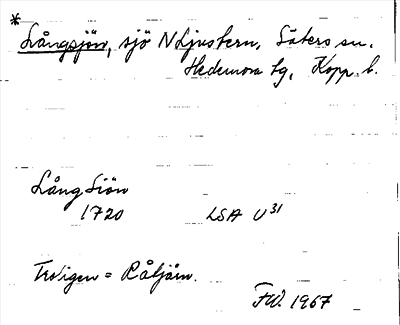 * Långsjön, sjö N Ljustern, Säters sn,
Hedemora tg, Kopp. l.
Lång Siön
1720 LSA U31
Troligen = Råljärn.
FW. 1967